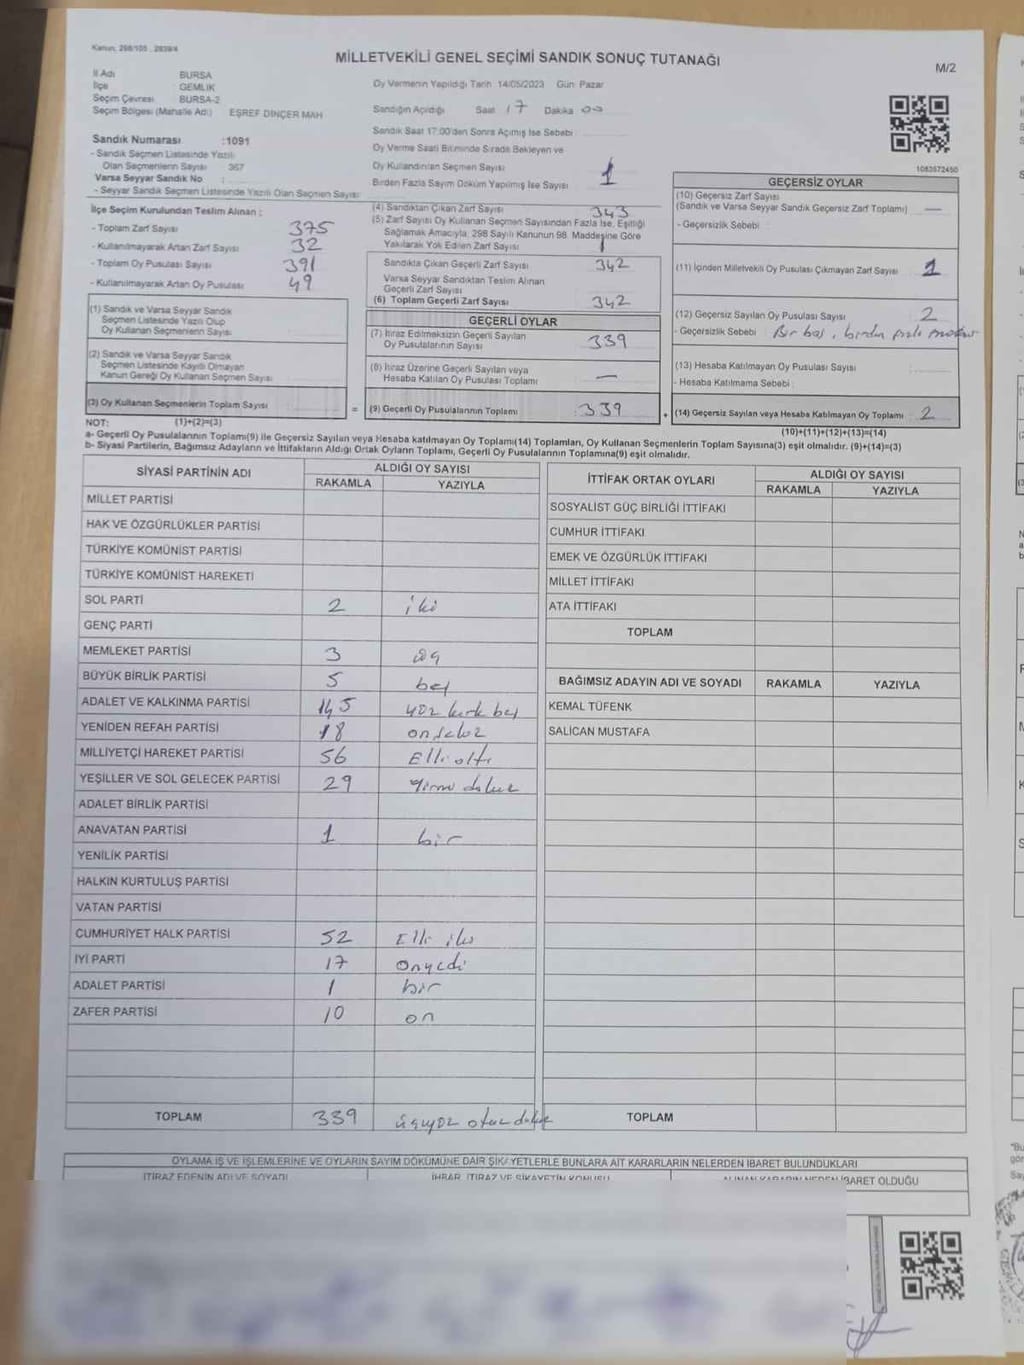 Kanun, 298/105 , 2839/4
MİLLETVEKİLİ GENEL SEÇİMİ SANDIK SONUÇ TUTANAĞI
M/2
İl Adı BURSA
İlçe GEMLİK
Seçim Çevresi BURSA-2
Seçim Bölgesi (Mahalle Adı) EŞREF DİNÇER MAH
Sandık Numarası :1091
- Sandık Seçmen Listesinde Yazılı
Olan Seçmenlerin Sayısı 367
Varsa Seyyar Sandık No :
- Seyyar Sandık Seçmen Listesinde Yazılı Olan Seçmen Sayısı
Oy Vermenin Yapıldığı Tarih 14/05/2023 Gün: Pazar
Sandığın Açıldığı Saat 17 Dakika 00
Sandık Saat 17:00'den Sonra Açılmış İse Sebebi
Oy Verme Saati Bitiminde Sırada Bekleyen ve
Oy Kullandırılan Seçmen Sayısı
Birden Fazla Sayım Döküm Yapılmış İse Sayısı 1
1083572450
İlçe Seçim Kurulundan Teslim Alınan :
- Toplam Zarf Sayısı 375
- Kullanılmayarak Artan Zarf Sayısı 32
- Toplam Oy Pusulası Sayısı 391
- Kullanılmayarak Artan Oy Pusulası 49
(1) Sandık ve Varsa Seyyar Sandık
Seçmen Listesinde Yazılı Olup
Oy Kullanan Seçmenlerin Sayısı
(2) Sandık ve Varsa Seyyar Sandık
Seçmen Listesinde Kayıtlı Olmayan
Kanun Gereği Oy Kullanan Seçmen Sayısı
(3) Oy Kullanan Seçmenlerin Toplam Sayısı
NOT: (1)+(2)=(3)
(4) Sandıktan Çıkan Zarf Sayısı 343
(5) Zarf Sayısı Oy Kullanan Seçmen Sayısından Fazla İse, Eşitliği
Sağlamak Amacıyla, 298 Sayılı Kanunun 98. Maddesine Göre
Yakılarak Yok Edilen Zarf Sayısı 1
Sandıkta Çıkan Geçerli Zarf Sayısı 342
Varsa Seyyar Sandıktan Teslim Alınan
Geçerli Zarf Sayısı
(6) Toplam Geçerli Zarf Sayısı 342
GEÇERLİ OYLAR
(7) İtiraz Edilmeksizin Geçerli Sayılan
Oy Pusulalarının Sayısı 339
(8) İtiraz Üzerine Geçerli Sayılan veya
Hesaba Katılan Oy Pusulası Toplamı —
= (9) Geçerli Oy Pusulalarının Toplamı : 339 +
GEÇERSİZ OYLAR
(10) Geçersiz Zarf Sayısı
(Sandık ve Varsa Seyyar Sandık Geçersiz Zarf Toplamı) —
- Geçersizlik Sebebi
(11) İçinden Milletvekili Oy Pusulası Çıkmayan Zarf Sayısı 1
(12) Geçersiz Sayılan Oy Pusulası Sayısı 2
- Geçersizlik Sebebi
(13) Hesaba Katılmayan Oy Pusulası Sayısı
- Hesaba Katılmama Sebebi
(14) Geçersiz Sayılan veya Hesaba Katılmayan Oy Toplamı 2
(10)+(11)+(12)+(13)=(14)
a- Geçerli Oy Pusulalarının Toplamı(9) ile Geçersiz Sayılan veya Hesaba katılmayan Oy Toplamı(14) Toplamları, Oy Kullanan Seçmenlerin Toplam Sayısına(3) eşit olmalıdır. (9)+(14)=(3)
b- Siyasi Partilerin, Bağımsız Adayların ve İttifakların Aldığı Ortak Oyların Toplamı, Geçerli Oy Pusulalarının Toplamına(9) eşit olmalıdır.
SİYASİ PARTİNİN ADI ALDIĞI OY SAYISI
RAKAMLA YAZIYLA
MİLLET PARTİSİ
HAK VE ÖZGÜRLÜKLER PARTİSİ
TÜRKİYE KOMÜNİST PARTİSİ
TÜRKİYE KOMÜNİST HAREKETİ
SOL PARTİ 2 iki
GENÇ PARTİ
MEMLEKET PARTİSİ 3 üç
BÜYÜK BİRLİK PARTİSİ 5 beş
ADALET VE KALKINMA PARTİSİ 145 yüz kırk beş
YENİDEN REFAH PARTİSİ 18 onsekiz
MİLLİYETÇİ HAREKET PARTİSİ 56 Elli altı
YEŞİLLER VE SOL GELECEK PARTİSİ 29 Yirmi dokuz
ADALET BİRLİK PARTİSİ
ANAVATAN PARTİSİ 1 bir
YENİLİK PARTİSİ
HALKIN KURTULUŞ PARTİSİ
VATAN PARTİSİ
CUMHURİYET HALK PARTİSİ 52 Elli iki
İYİ PARTİ 17 Onyedi
ADALET PARTİSİ 1 bir
ZAFER PARTİSİ 10 on
TOPLAM 339 üçyüz otuz dokuz
İTTİFAK ORTAK OYLARI ALDIĞI OY SAYISI
RAKAMLA YAZIYLA
SOSYALİST GÜÇ BİRLİĞİ İTTİFAKI
CUMHUR İTTİFAKI
EMEK VE ÖZGÜRLÜK İTTİFAKI
MİLLET İTTİFAKI
ATA İTTİFAKI
TOPLAM
BAĞIMSIZ ADAYIN ADI VE SOYADI RAKAMLA YAZIYLA
KEMAL TÜFENK
SALİCAN MUSTAFA
TOPLAM
OYLAMA İŞ VE İŞLEMLERİNE VE OYLARIN SAYIM DÖKÜMÜNE DAİR ŞİKAYETLERLE BUNLARA AİT KARARLARIN NELERDEN İBARET BULUNDUKLARI
İTİRAZ EDENİN ADI VE SOYADI İHBAR, İTİRAZ VE ŞİKAYETİN KONUSU ALINAN KARARIN NEDEN İBARET OLDUĞU